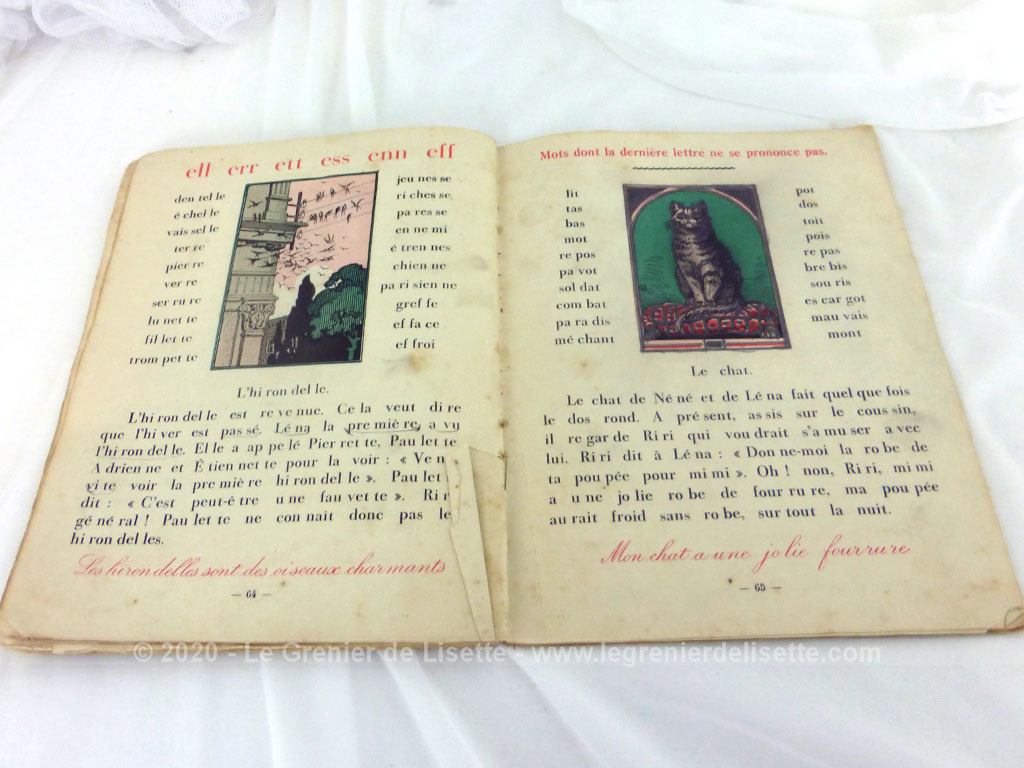 ell err ett ess enn eff
den tel le
é chel le
vais sel le
ter re
pier re
ver re
ser ru re
lu net te
fil let te
trom pet te
jeu nes se
ri ches se
pa res se
en ne mi
é tren nes
chien ne
pa ri sien ne
gref fe
ef fa ce
ef froi
L'hi ron del le.
L'hi ron del le est re ve nue. Ce la veut di re
que l'hi ver est pas sé. Lé na la pre miè re, a vu
l'hi ron del le. El le a ap pe lé Pier ret te, Pau let te
A drien ne et É tien net te pour la voir : « Ve n
vi te voir la pre miè re hi ron del le ». Pau let
dit : « C'est peut-ê tre u ne fau vet te ». Ri r
gé né ral ! Pau let te ne con naît donc pas le
hi ron del les.
Les hiron delles sont des oiseaux char mants
— 64 —
Mots dont la dernière lettre ne se prononce pas.
lit
tas
bas
mot
re pos
pa vot
sol dat
com bat
pa ra dis
mé chant
pot
dos
toit
pois
re pas
bre bis
sou ris
es car got
mau vais
mont
Le chat.
Le chat de Né né et de Lé na fait quel que fois
le dos rond. A pré sent, as sis sur le cous sin,
il re gar de Ri ri qui vou drait s'a mu ser a vec
lui. Ri ri dit à Lé na : « Don ne-moi la ro be de
ta pou pée pour mi mi ». Oh ! non, Ri ri, mi mi
a u ne jo lie ro be de four ru re, ma pou pée
au rait froid sans ro be, sur tout la nuit.
Mon chat a une jo lie fourrure
— 65 —
© 2020 - Le Grenier de Lisette - www.legrenierdelisette.com